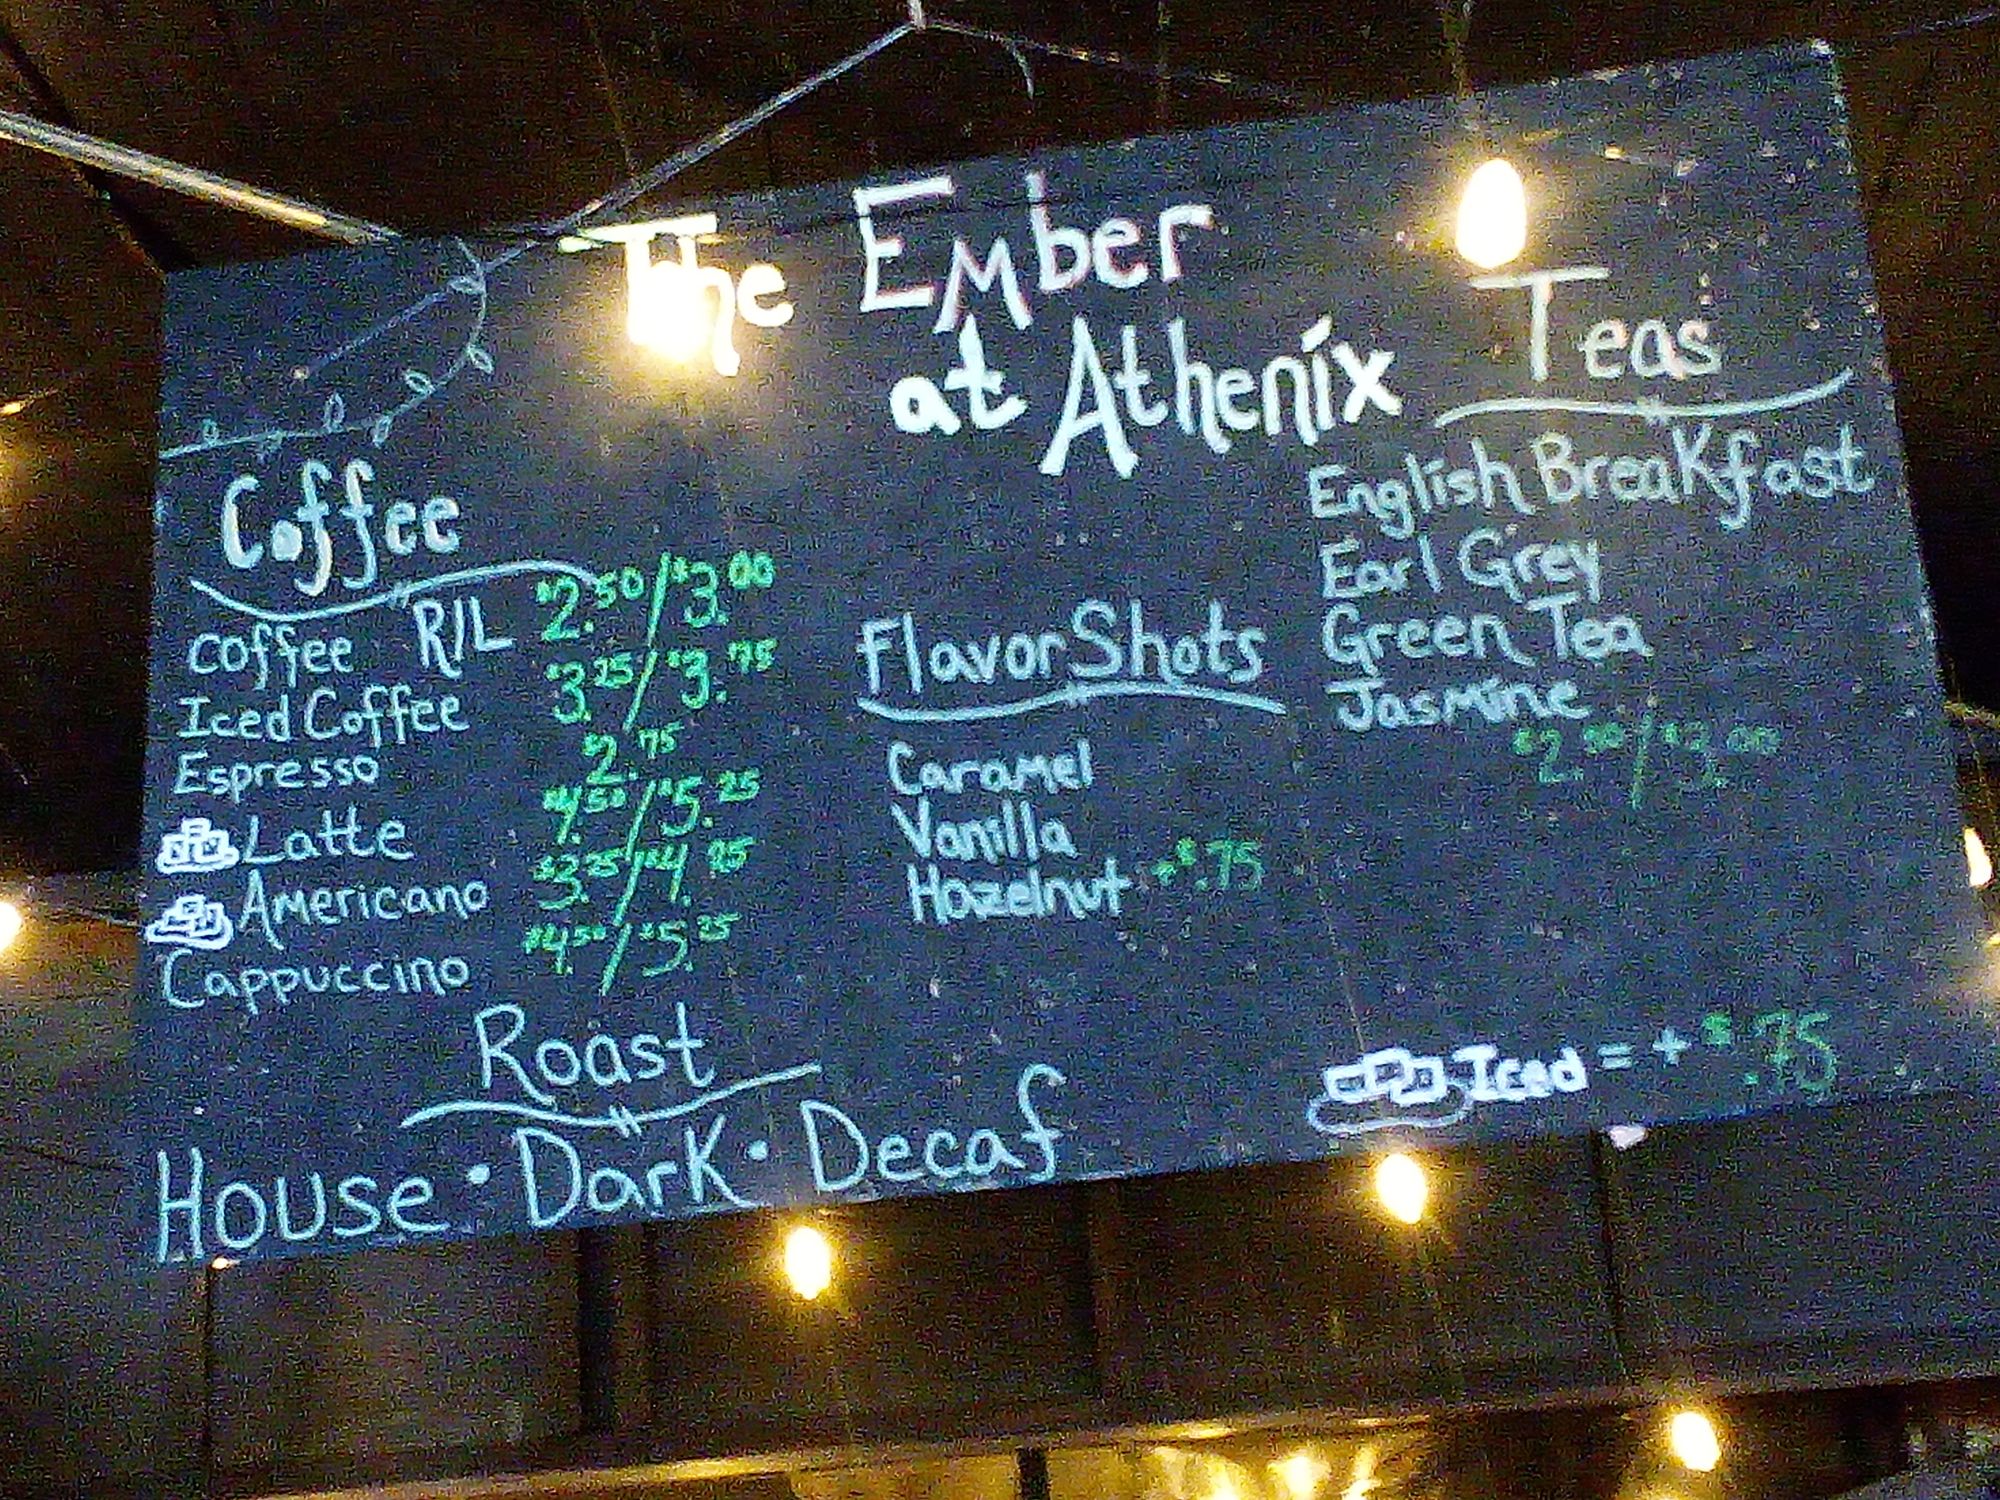 The Ember
at Athenix
Coffee
Coffee R/L $2.50/$3.00
Iced Coffee $3.25/$3.75
Espresso $2.75
Latte $4.50/$5.25
Americano $3.25/$4.25
Cappuccino $4.50/$5.25
Roast
House • Dark • Decaf
Flavor Shots
Caramel
Vanilla
Hazelnut +$.75
Teas
English Breakfast
Earl Grey
Green Tea
Jasmine
$2.00/$3.00
Iced = + $.75